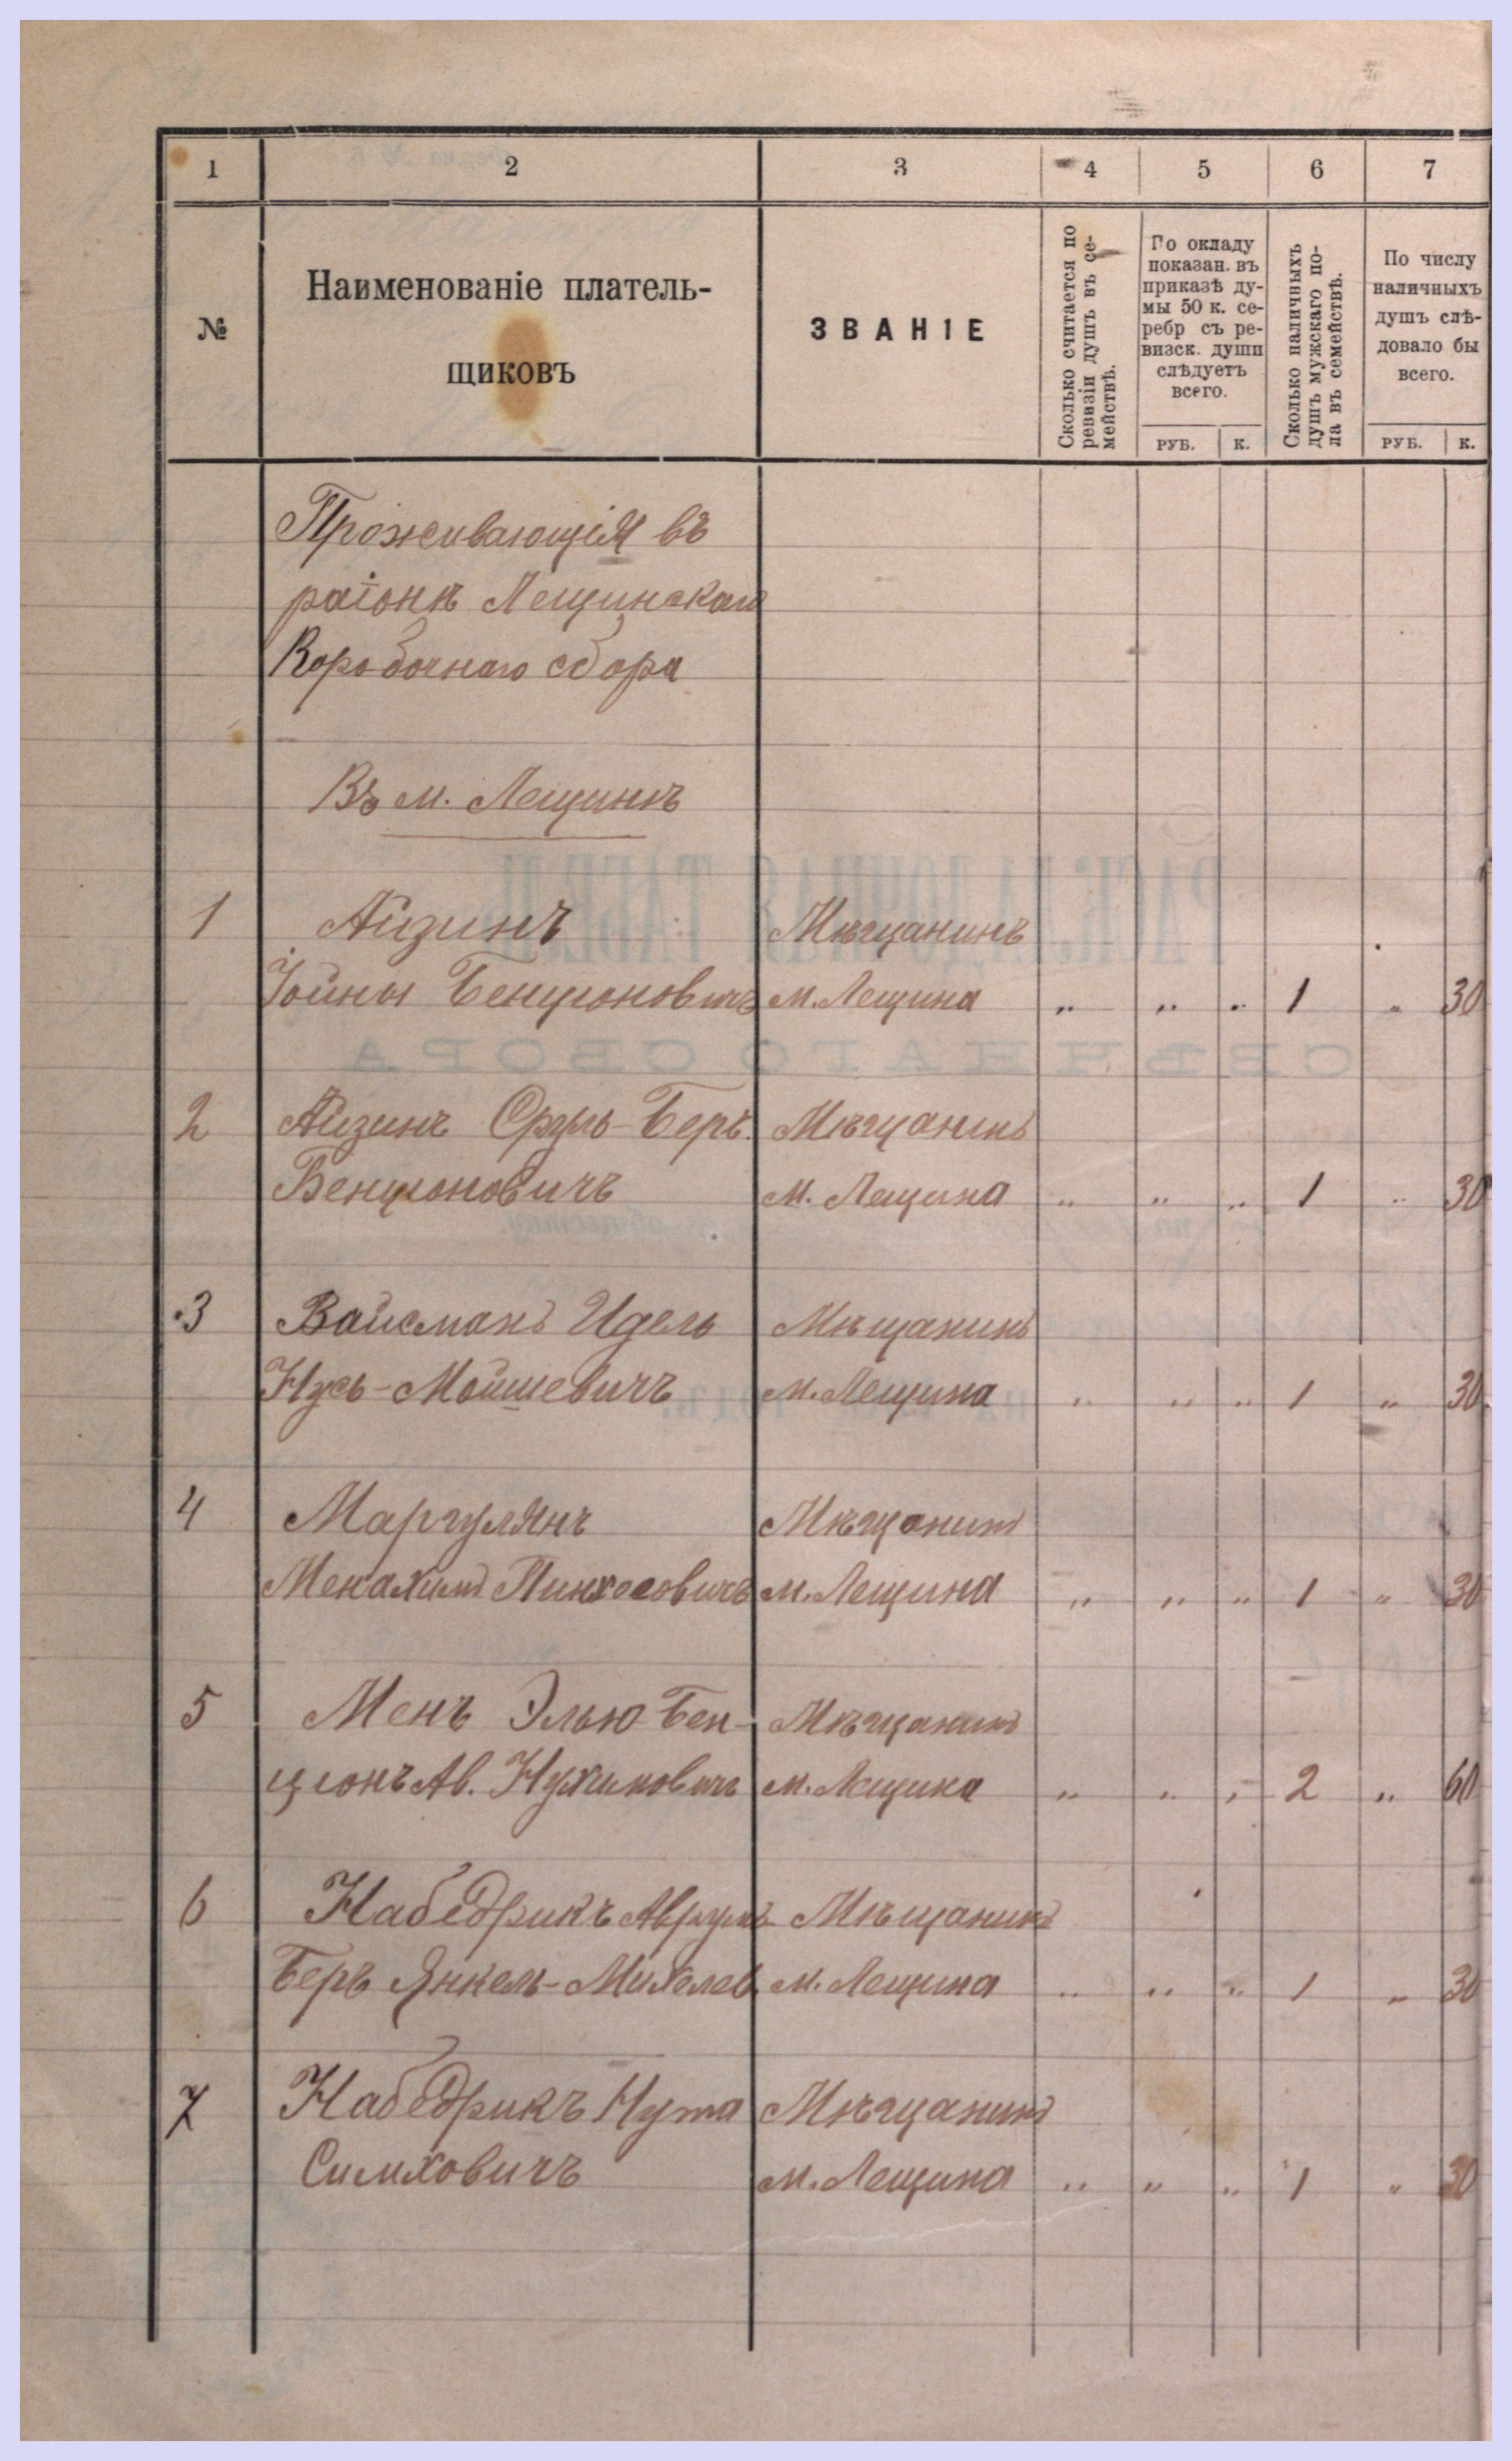 1 2 3 4 5 6 7
№
Наименованіе плательщиковъ
ЗВАНІЕ
Сколько считается по
ревизіи душъ въ се-
мействѣ.
По окладу
показан. въ
приказѣ ду-
мы 50 к. се-
ребр съ ре-
визск. души
слѣдуетъ
всего.
РУБ. К.
Сколько наличныхъ
душъ мужскаго по-
ла въ семействѣ.
По числу
наличныхъ
душъ слѣ-
довало бы
всего.
РУБ. К.
Проживающія въ
раіонѣ Лещинскаго
Коробочнаго сбора
Въ м. Лещинѣ
1 Айзинъ Мѣщанинъ
Іойны Бенціоновичъ м. Лещина „ „ „ 1 „ 30
2 Айзинъ Сруль-Беръ. Мѣщанинъ
Бенціоновичъ м. Лещина „ „ „ 1 „ 30
3 Вайсманъ Идель Мѣщанинъ
Нусь-Мойшевичъ м. Лещина „ „ „ 1 „ 30
4 Маргулянъ Мѣщанинъ
Менахимъ Пинхосовичъ м. Лещина „ „ „ 1 „ 30
5 Менъ Элью-Бен- Мѣщанинъ
ціонъ Ав. Нухимовичъ м. Лещина „ „ „ 2 „ 60
6 Набедрикъ Аврумъ Мѣщанинъ
Беръ Янкель-Михелев. м. Лещина „ „ „ 1 „ 30
7 Набедрикъ Нута Мѣщанинъ
Симховичъ м. Лещина „ „ „ 1 „ 30